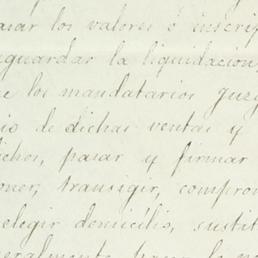 pasar los valores ó inscrip
aguardar la liquidacion
e los mandatarios juzg
io de dichas ventas y
dichos, pasar y firmar
oner, transigir, comprom
elegir domicilio, sustit
eralmente